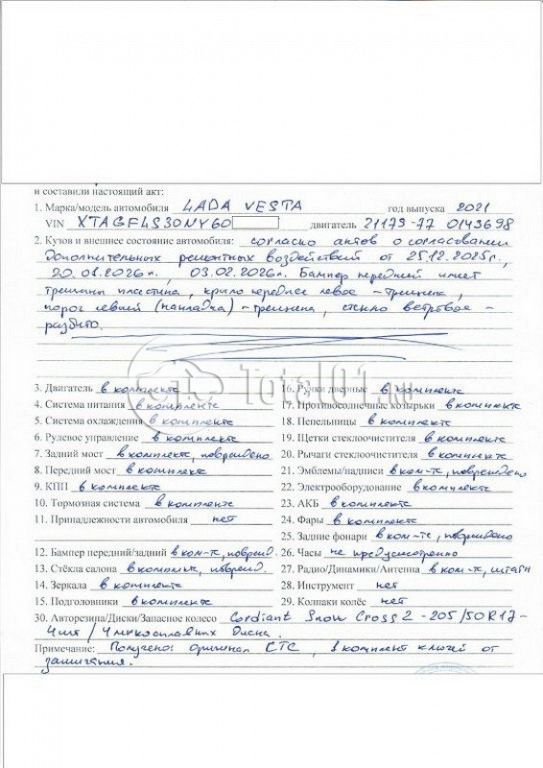 и составили настоящий акт:
1. Марка/модель автомобиля LADA VESTA год выпуска 2021
VIN XTAGFLS30NY60 двигатель 21179-77 0143698
2. Кузов и внешнее состояние автомобиля: согласно актов о согласовании
дополнительных ремонтных воздействий от 25.12.2025г.,
20.01.2026г., 03.02.2026г. Бампер передний имеет
трещины пластика, крыло переднее левое - трещина,
порог левый (накладка) - трещина, стекло ветровое -
разбито.
Total01.ru
3. Двигатель в комплекте 16. Ручки дверные в комплекте
4. Система питания в комплекте 17. Противосолнечные козырьки в комплекте
5. Система охлаждения в комплекте 18. Пепельницы в комплекте
6. Рулевое управление в комплекте 19. Щетки стеклоочистителя в комплекте
7. Задний мост в комплекте, повреждено 20. Рычаги стеклоочистителя в комплекте
8. Передний мост в комплекте 21. Эмблемы/надписи в ком-те, повреждено
9. КПП в комплекте 22. Электрооборудование в комплекте
10. Тормозная система в комплекте 23. АКБ в комплекте
11. Принадлежности автомобиля нет 24. Фары в комплекте
25. Задние фонари в ком-те, повреждено
12. Бампер передний/задний в ком-те, поврежд. 26. Часы не предусмотрено
13. Стёкла салона в комплекте, поврежд. 27. Радио/Динамики/Антенна в ком-те, штатн
14. Зеркала в комплекте 28. Инструмент нет
15. Подголовники в комплекте 29. Колпаки колёс нет
30. Авторезина/Диски/Запасное колесо Cordiant Snow Cross 2 - 205/50R17-
4шт / 4 легкосплавных диска.
Примечание: Получено: оригинал СТС, комплект ключей от
зажигания.